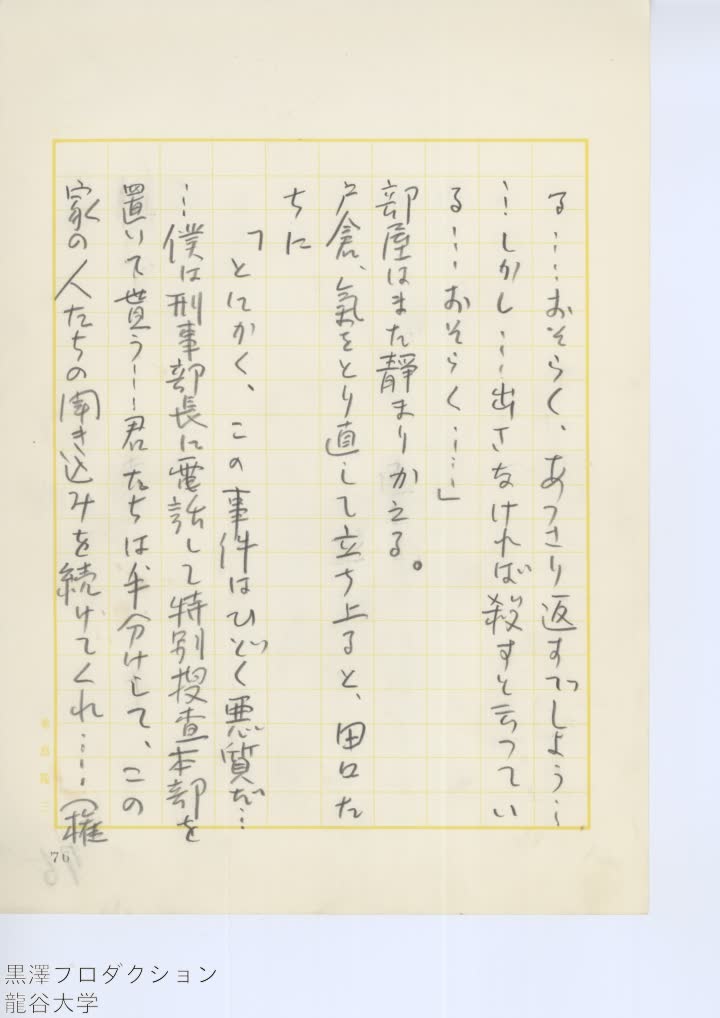 る……おそらく、あっさり返すでしょう…
…しかし……出さなければ殺すと云ってい
る……おそらく……」
部屋はまた静まりかえる。
戸倉、氣をとり直して立ち上ると、田口た
ちに
「とにかく、この事件はひどく悪質だ…
…僕は刑事部長に電話して特別捜査本部を
置いて貰う……君たちは手分けして、この
家の人たちの聞き込みを続けてくれ……(権
76
黒澤プロダクション
龍谷大学